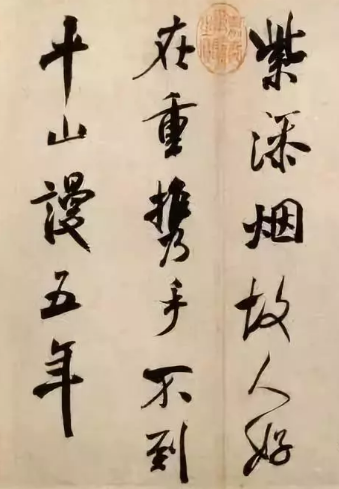 紫添烟故人好
在重携手不到
平山謾五年